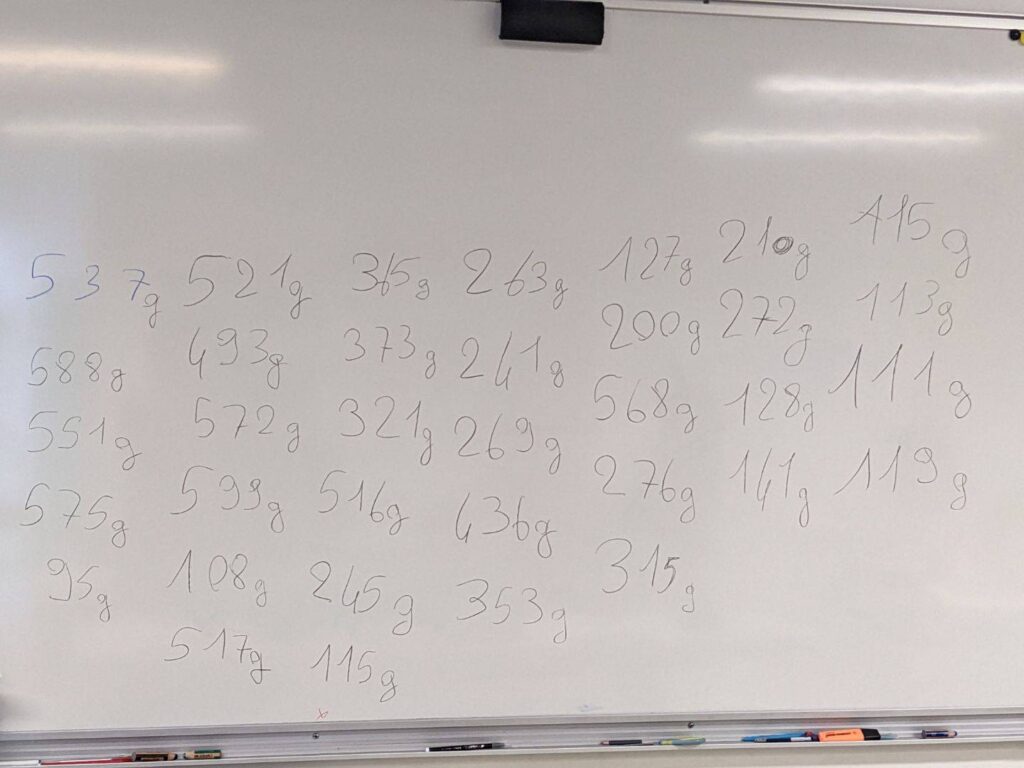 537g 521g 365g 263g 127g 210g 115g
588g 493g 373g 241g 200g 272g 113g
551g 572g 321g 269g 568g 128g 111g
575g 599g 516g 436g 276g 141g 119g
95g 108g 245g 353g 315g
517g 115g